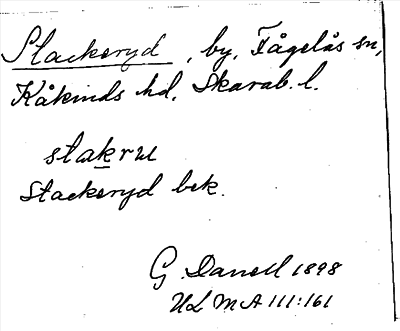 Stackeryd, by, Fågelås sn,
Kåkinds hd, Skarab. l.
stakru
Stackeryd bek.
G. Danell 1898
ULMA 111:161